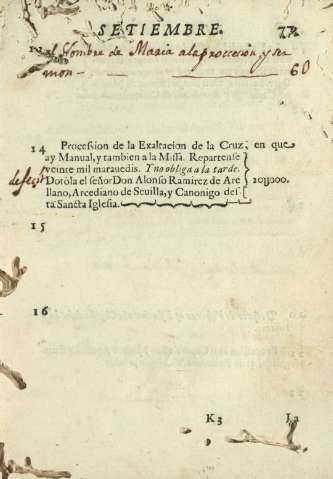 SETIEMBRE. 77.
Nombre de Maria a la procession y ser
mon - 60
14 Procession de la Exaltacion de la Cruz, en que
ay Manual, y tambien a la Missa. Repartense
veinte mil marauedis. Y no obliga a la tarde.
Dotòla el señor Don Alonso Ramirez de Are
llano, Arcediano de Seuilla, y Canonigo des-
ta Sancta Iglesia.
20U000.
15
16
K3 La